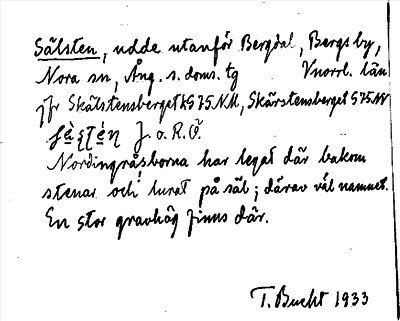 Sälsten, udde utanför Bergdal, Bergs by,
Nora sn, Ång. s. doms. tg Vnorrl. län
jfr Skälstensberget KG75NM, Skärstensberget G75NV
J. o. R. Ö.
Nordingråsborna har legat där bakom
stenar och lurat på säl; därav väl namnet.
En stor gravhög finns där.
T. Bucht 1933